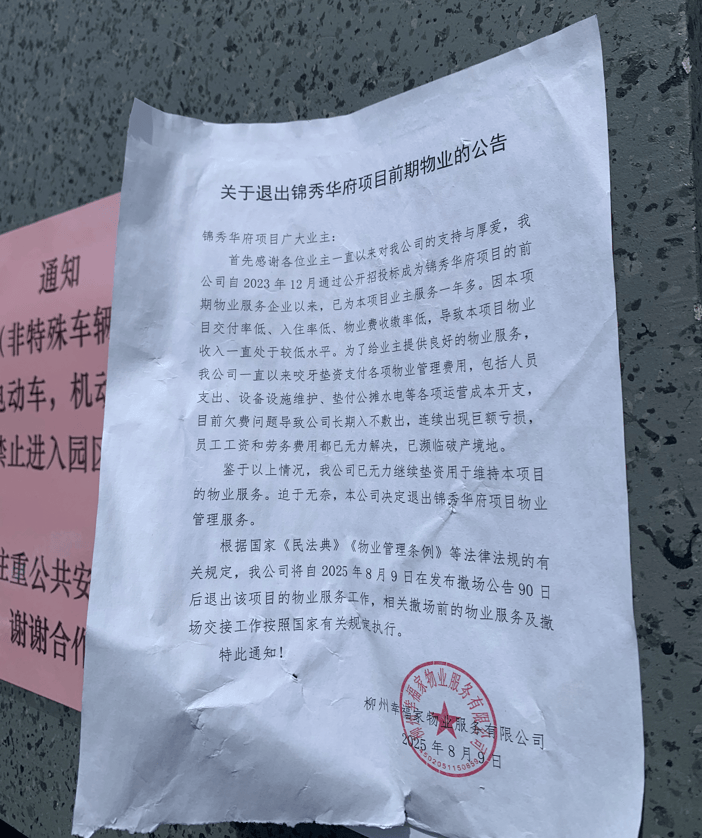 关于退出锦秀华府项目前期物业的公告
锦秀华府项目广大业主：
首先感谢各位业主一直以来对我公司的支持与厚爱，我
公司自2023年12月通过公开招投标成为锦秀华府项目的前
期物业服务企业以来，已为本项目业主服务一年多。因本项
目交付率低、入住率低、物业费收缴率低，导致本项目物业
收入一直处于较低水平。为了给业主提供良好的物业服务，
我公司一直以来咬牙垫资支付各项物业管理费用，包括人员
支出、设备设施维护、垫付公摊水电等各项运营成本开支，
目前欠费问题导致公司长期入不敷出，连续出现巨额亏损，
员工工资和劳务费用都已无力解决，已濒临破产境地。
鉴于以上情况，我公司已无力继续垫资用于维持本项目
的物业服务。迫于无奈，本公司决定退出锦秀华府项目物业
管理服务。
根据国家《民法典》《物业管理条例》等法律法规的有
关规定，我公司将自2025年8月9日在发布撤场公告90日
后退出该项目的物业服务工作，相关撤场前的物业服务及撤
场交接工作按照国家有关规定执行。
特此通知！
柳州幸福家物业服务有限公司
2025年8月9日
柳州幸福家物业服务有限公司
通知
（非特殊车辆
电动车，机动
禁止进入园区
注重公共安
谢谢合作